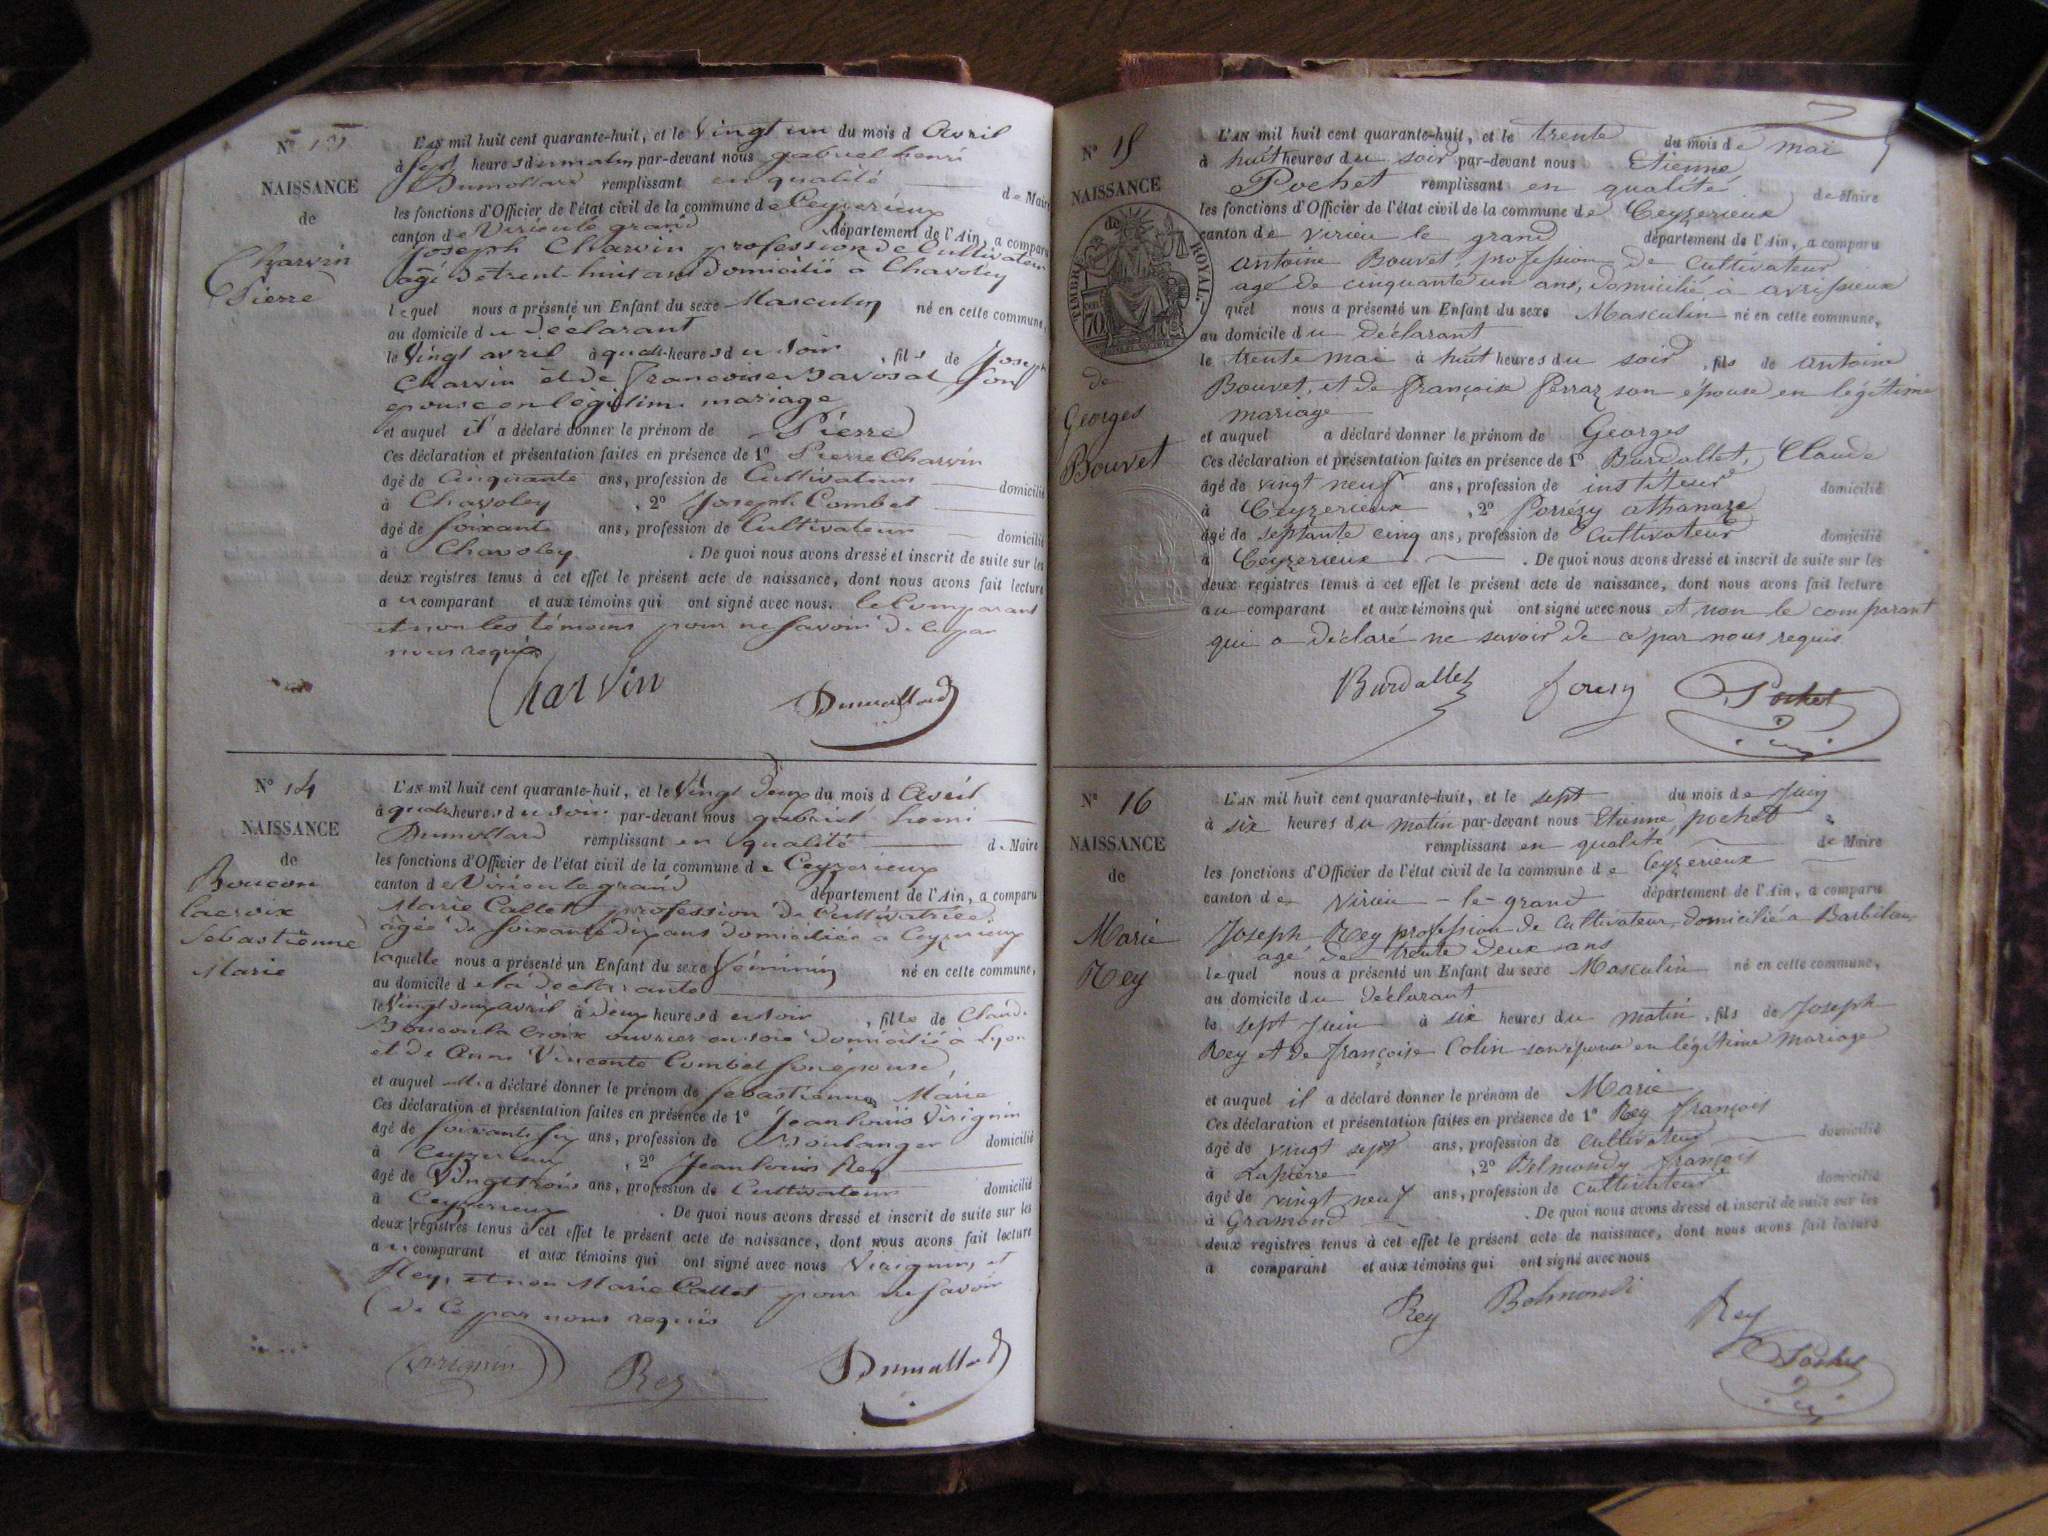 N°
NAISSANCE
de
Charvin
Pierre
L'AN mil huit cent quarante-huit, et le Vingt un du mois d Avril
à sept heures du matin par-devant nous gabriel henri
Dumollard remplissant en qualité de Maire
les fonctions d'Officier de l'état civil de la commune de Ceyzerieux
canton de Virieu le grand département de l'Ain, a comparu
Joseph Charvin profession de Cultivateur
agé de trent huit ans domicilié a Chavoley
lequel nous a présenté un Enfant du sexe Masculin né en cette commune,
au domicile du déclarant
le Vingt avril à quatre heures du soir, fils de Joseph
Charvin et de francoise Bavosat son
epouse en légitime mariage
et auquel il a déclaré donner le prénom de Pierre
Ces déclaration et présentation faites en présence de 1° Pierre Charvin
âgé de Cinquante ans, profession de Cultivateur domicilié
à Chavoley, 2° Joseph Combet
âgé de soixante ans, profession de Cultivateur domicilié
à Chavoley. De quoi nous avons dressé et inscrit de suite sur les
deux registres tenus à cet effet le présent acte de naissance, dont nous avons fait lecture
au comparant et aux témoins qui ont signé avec nous. le Comparant
et non les témoins pour ne savoir de ce par
nous requis
Charvin Dumollard
N° 14
NAISSANCE
de
Boucon
lacroix
Sebastienne
Marie
L'AN mil huit cent quarante-huit, et le Vingt deux du mois d Avril
à quatre heures du soir par-devant nous gabriel henri
Dumollard remplissant en qualité de Maire
les fonctions d'Officier de l'état civil de la commune de Ceyzerieux
canton de Virieu le grand département de l'Ain, a comparu
Marie Callet profession de Cultivatrice
âgée de soixante dix ans domiciliée à Ceyzerieux
laquelle nous a présenté un Enfant du sexe féminin né en cette commune,
au domicile de la déclarante
le Vingt deux avril à deux heures du soir, fille de Claude
Boucon la Croix ouvrier en soie domicilié à Lyon
et de Anne Vincente Combet son épouse,
et auquel elle a déclaré donner le prénom de Sebastienne Marie
Ces déclaration et présentation faites en présence de 1° Jean louis Virignin
âgé de soixante six ans, profession de Boulanger domicilié
à Ceyzerieux, 2° Jean louis Rey
âgé de Vingt trois ans, profession de Cultivateur domicilié
à Ceyzerieux. De quoi nous avons dressé et inscrit de suite sur les
deux registres tenus à cet effet le présent acte de naissance, dont nous avons fait lecture
au comparant et aux témoins qui ont signé avec nous Virignin, et
Rey, et non Marie Callet pour ne savoir
de Ce par nous requis
Virignin Rey Dumollard
N° 15
NAISSANCE
de
TIMBRE ROYAL
70
de
Georges
Bouvet
L'AN mil huit cent quarante-huit, et le trente du mois de mai
à huit heures du soir par-devant nous Etienne
Pochet remplissant en qualité de Maire
les fonctions d'Officier de l'état civil de la commune de Ceyzerieux
canton de virieu le grand département de l'Ain, a comparu
antoine Bouvet, profession de cultivateur
agé de cinquante un ans, domicilié à avrissieux
quel nous a présenté un Enfant du sexe Masculin né en cette commune,
au domicile du déclarant
le trente mai à huit heures du soir, fils de antoine
Bouvet, et de françoise ferraz son épouse en légitime
mariage
et auquel a déclaré donner le prénom de Georges
Ces déclaration et présentation faites en présence de 1° Burdallet, Claude
âgé de vingt neuf ans, profession de instituteur domicilié
à Ceyzerieux, 2° athanaze
âgé de septante cinq ans, profession de cultivateur domicilié
à Ceyzerieux. De quoi nous avons dressé et inscrit de suite sur les
deux registres tenus à cet effet le présent acte de naissance, dont nous avons fait lecture
au comparant et aux témoins qui ont signé avec nous et non le comparant
qui a déclaré ne savoir de ce par nous requis.
Burdallet Pochet
N° 16
NAISSANCE
de
Marie
Rey
L'AN mil huit cent quarante-huit, et le sept du mois de Juin
à six heures du matin par-devant nous Etienne pochet
remplissant en qualité de Maire
les fonctions d'Officier de l'état civil de la commune de Ceyzerieux
canton de Virieu-le-grand département de l'Ain, a comparu
Joseph Rey profession de Cultivateur, domicilié a
agé de trente deux ans
lequel nous a présenté un Enfant du sexe Masculin né en cette commune,
au domicile du déclarant
le sept Juin à six heures du matin, fils de Joseph
Rey et de françoise Colin son épouse en légitime Mariage
et auquel il a déclaré donner le prénom de Marie
Ces déclaration et présentation faites en présence de 1° Rey françois
âgé de vingt sept ans, profession de Cultivateur domicilié
à Lapierre, 2° Belmondy françois
âgé de vingt neuf ans, profession de Cultivateur domicilié
à Gramond. De quoi nous avons dressé et inscrit de suite sur les
deux registres tenus à cet effet le présent acte de naissance, dont nous avons fait lecture
a comparant et aux témoins qui ont signé avec nous
Rey Belmondi Rey
Pochet